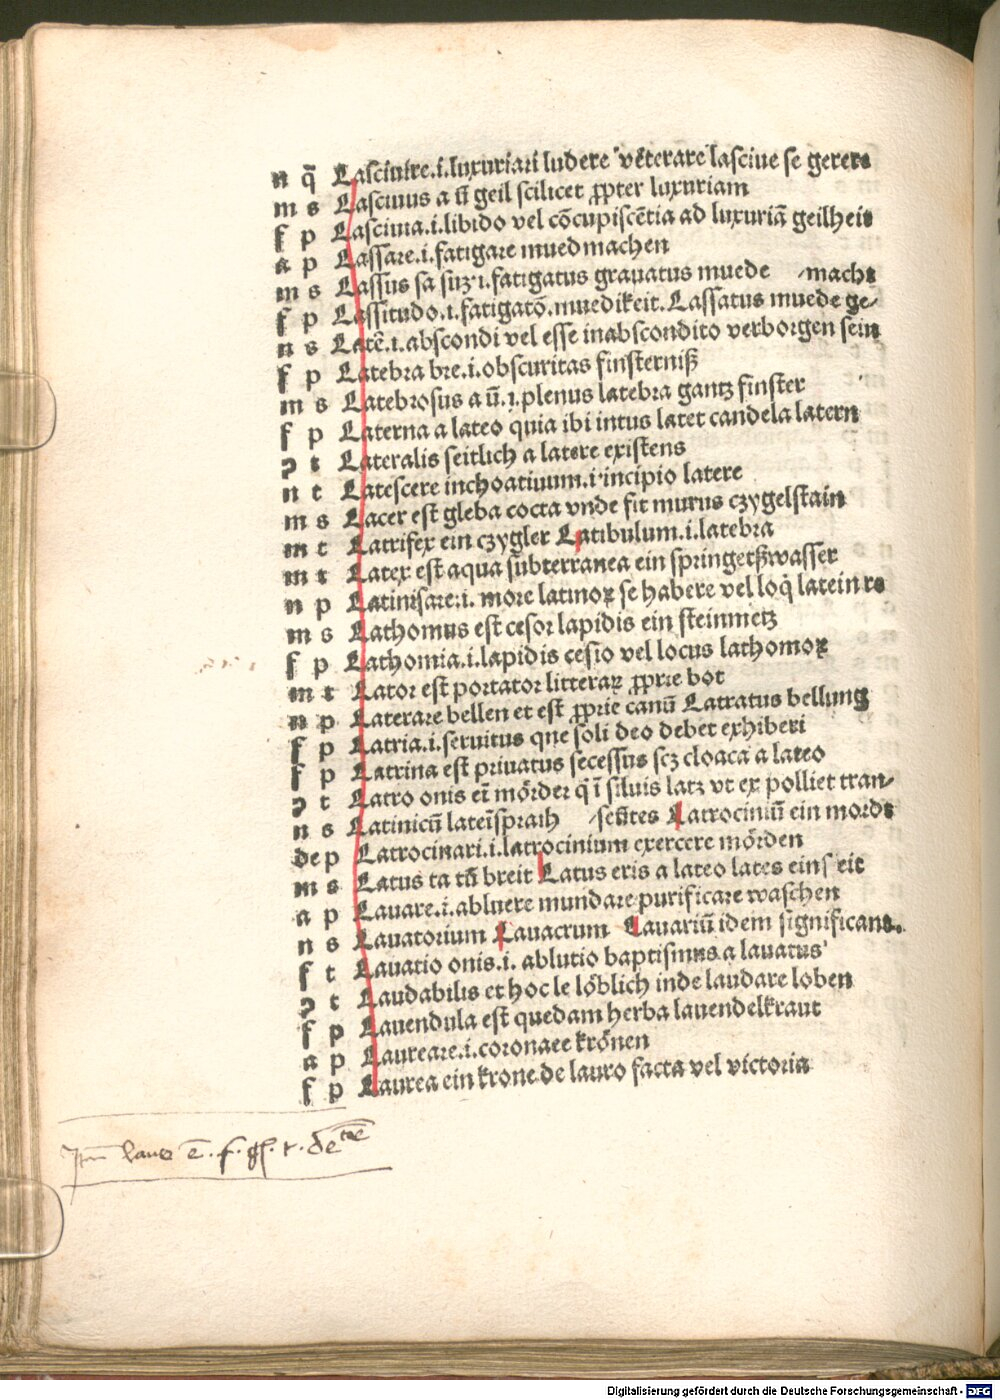 n q̄ Lasciuire.i.luxuriari ludere veterare lasciue se gerere
m s Lasciuus a ū geil scilicet ꝓpter luxuriam
f p Lasciuia.i.libido vel cōcupiscētia ad luxuriā geilheit
a p Lassare.i.fatigare mued machen
m s Lassus sa suꝫ.i.fatigatus grauatus muede ⸗macht
f p Lassitudo.i.fatigatō.muedikeit.Lassatus muede ge⸗
n s Latē.i.abscondi vel esse inabscondito verborgen sein
f p Latebra bre.i.obscuritas finsterniß
m s Latebrosus a ū.i.plenus latebra gantz finster
f p Laterna a lateo quia ibi intus latet candela latern
ↄ t Lateralis seitlich a latere existens
n t Latescere inchoatiuum.i.incipio latere
m s Lacer est gleba cocta vnde fit murus czygelstain
m t Latrifex ein czygler Latibulum.i.latebra
m t Latex est aqua subterranea ein springetßwasser
n p Latinisare.i. more latinoꝝ se habere vel loq̇ latein re
m s Lathomus est cesor lapidis ein steinmetz
f p Lathomia.i.lapidis cesio vel locus lathomoꝝ
m t Lator est portator litteraꝝ ꝓprie bot
n p Laterare bellen et est ꝓprie canū Latratus bellung
f p Latria.i.seruitus que soli deo debet exhiberi
f p Latrina est priuatus secessus scꝫ cloaca a lateo
ↄ t Latro onis eī mörder q̇ ī siluis latꝫ vt ex polliet tran⸗
n s Latinicū lateīsprach ⸗seūtes Latrociniū ein mords
de p Latrocinari.i.latrocinium exercere mörden
m s Latus ta tū breit Latus eris a lateo lates ein seit
a p Lauare.i.abluere mundare purificare waschen
n s Lauatorium Lauacrum Lauariū idem significant.
f t Lauatio onis.i. ablutio baptismus a lauatus
ↄ t Laudabilis et hoc le löblich inde laudare loben
f p Lauendula est quedam herba lauendelkraut
a p Laureare.i.coronaee krönen
f p Laurea ein krone de lauro facta vel victoria
Digitalisierung gefördert durch die Deutsche Forschungsgemeinschaft - DFG